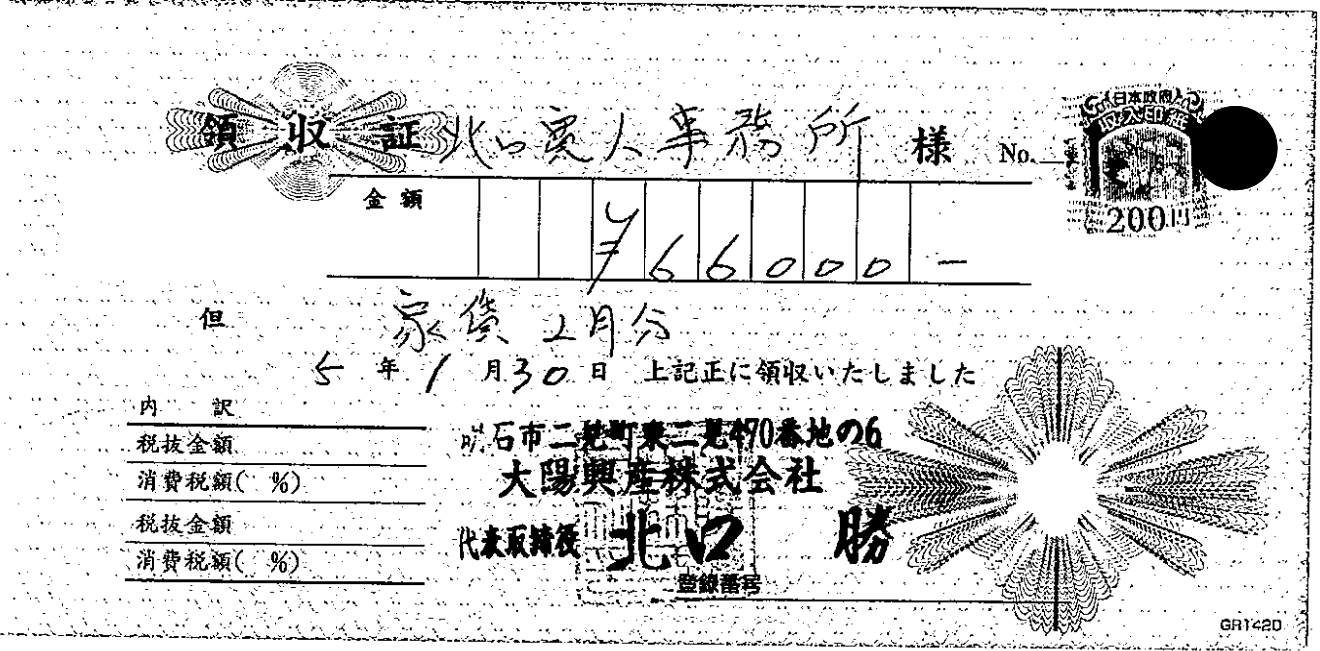 領収証 北口寛人事務所 様 No.
日本政府
収入印紙
200円
金額 ¥66000-
但 家賃 2月分
5年1月30日 上記正に領収いたしました
内訳
税抜金額
消費税額( %)
税抜金額
消費税額( %)
明石市二見町東二見470番地の6
大陽興産株式会社
代表取締役 北口 勝
登録番号
GR1420